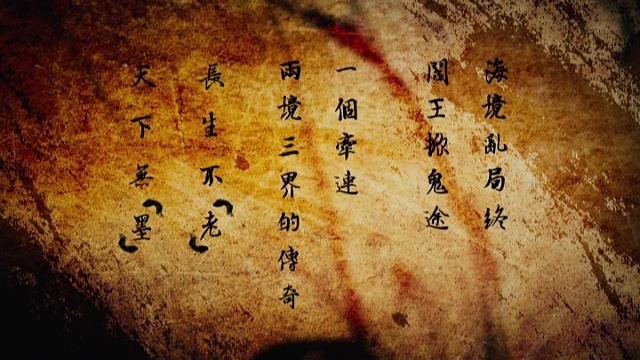 海境亂局終
閻王掀鬼途
一個牽連
兩境三界的傳奇
長生不「老」
天下無「墨」